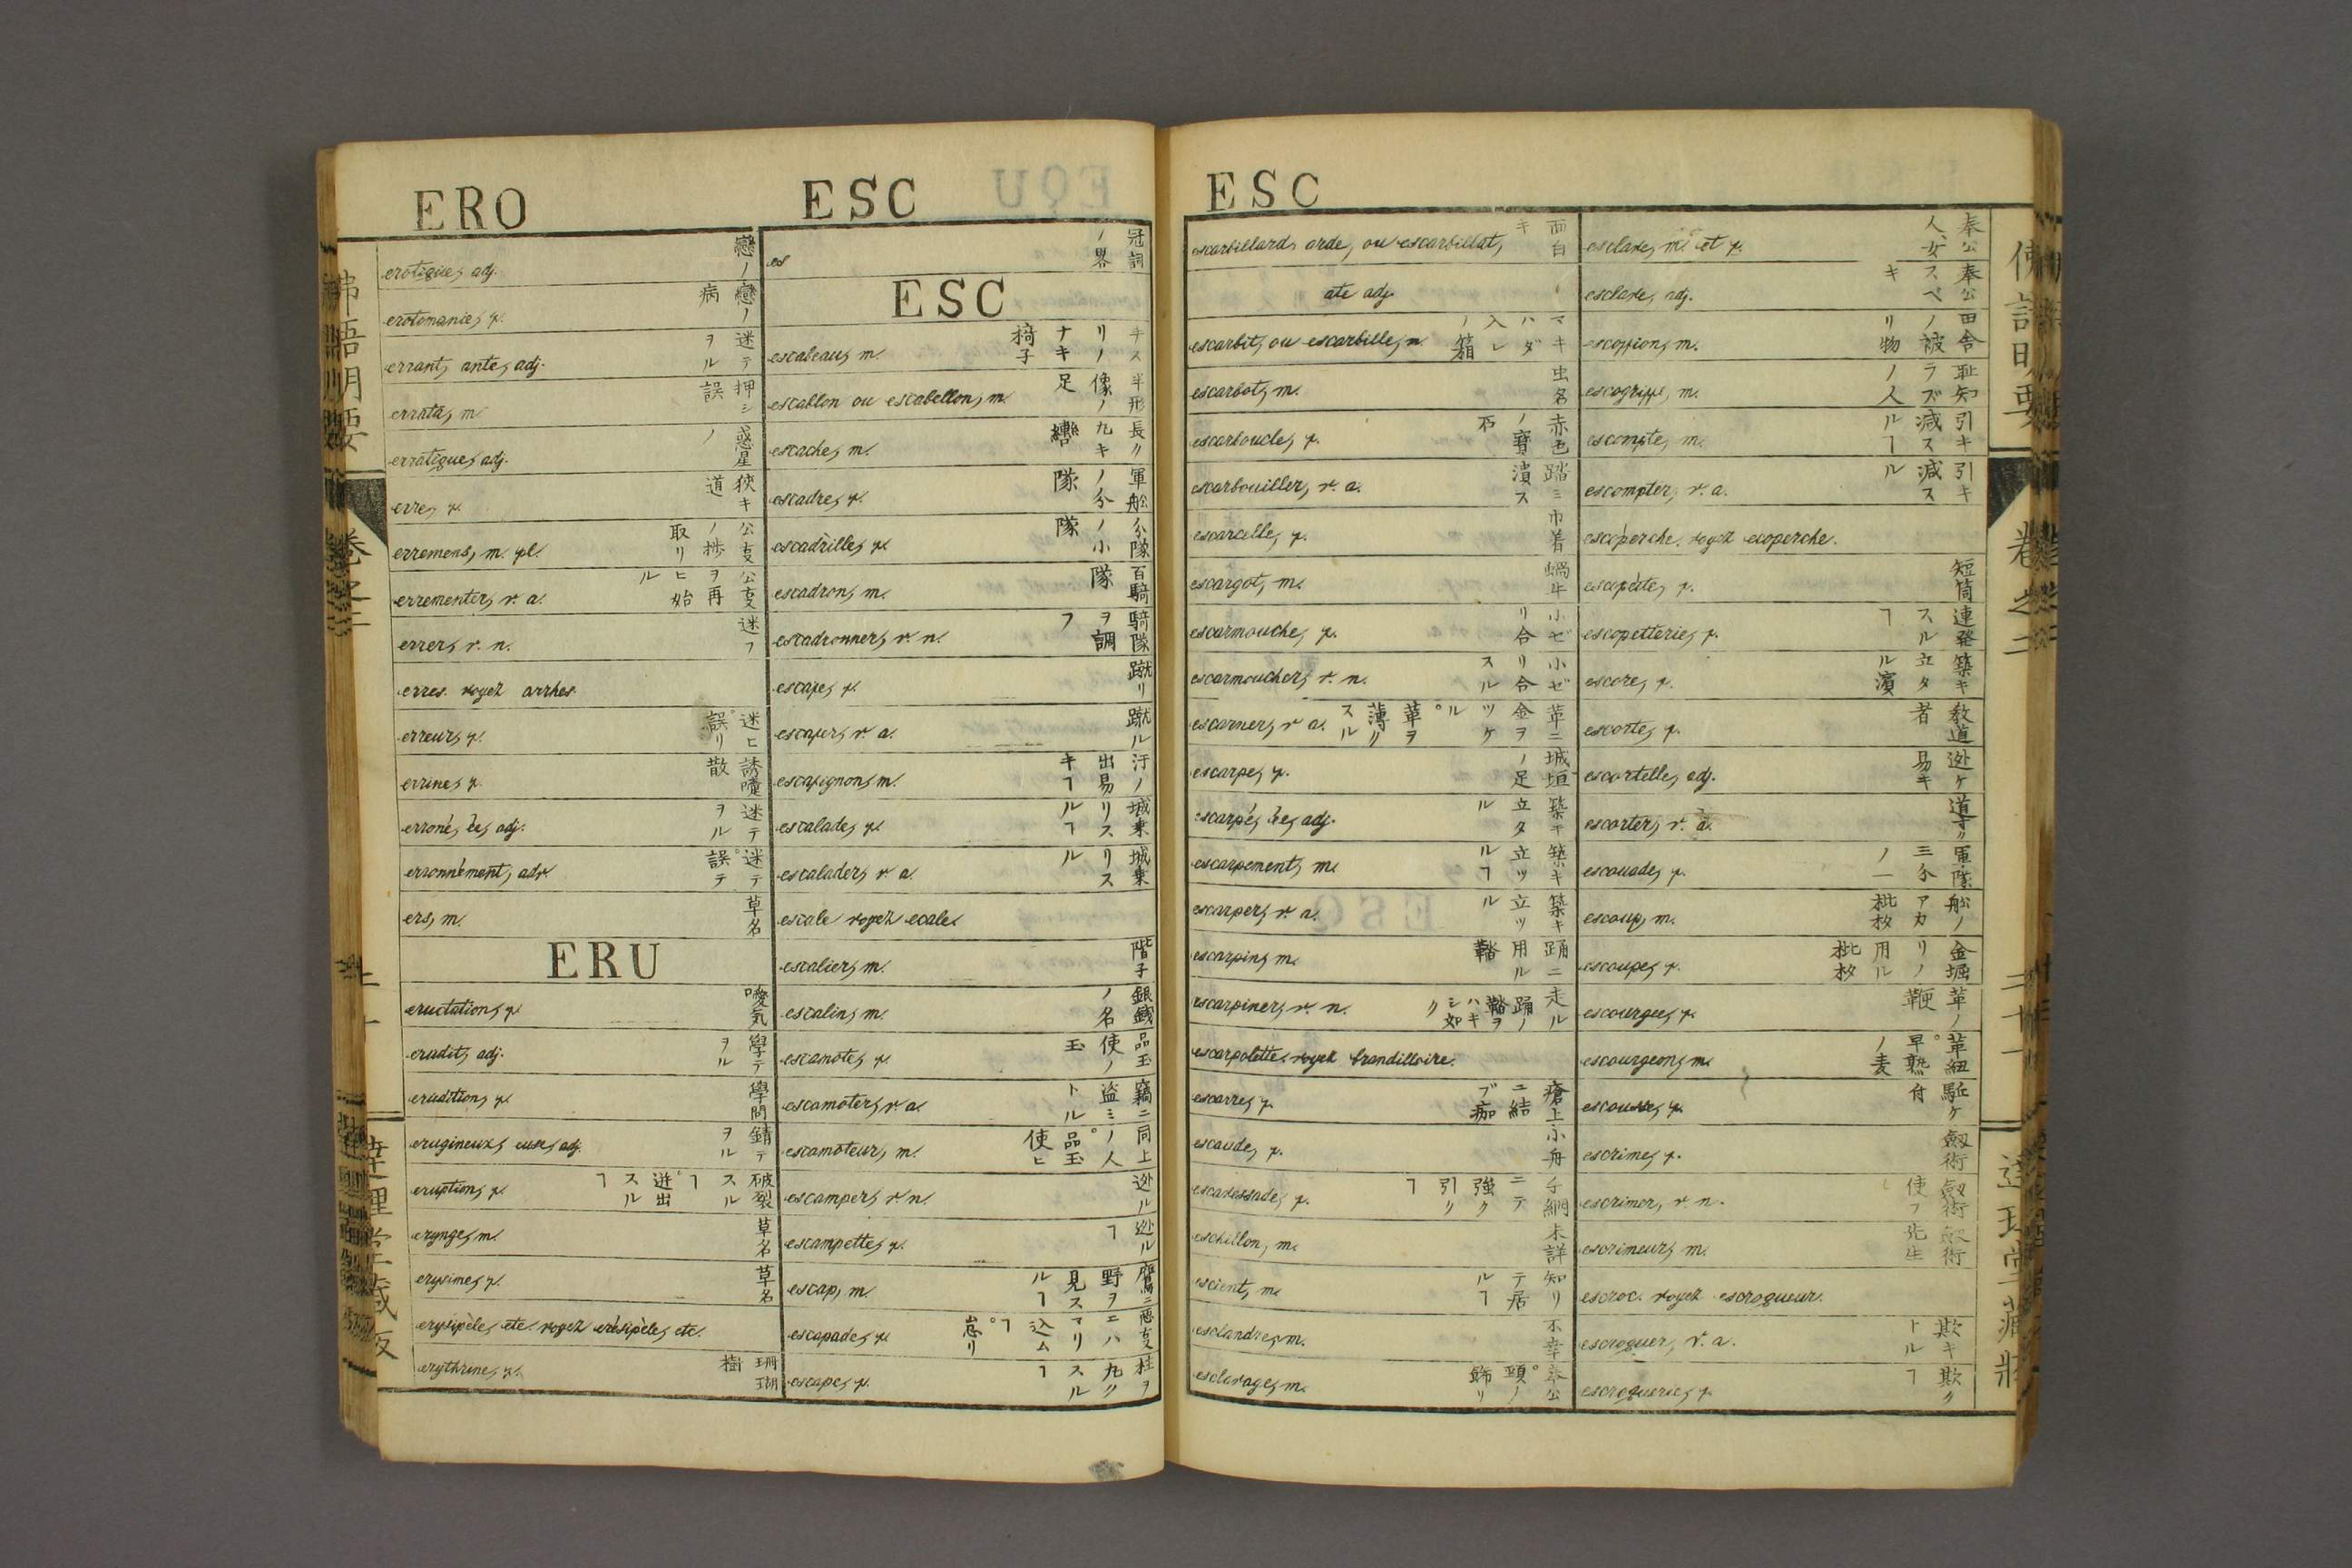 ERO
ESC
erotique, adj. 戀ノ
erotomanie, f. 戀ノ病
errant, ante, adj. 迷テヲル
errata, m. 押シ誤
erratique, adj. 惑星ノ
erre, f. 狹キ道
erremens, m. pl. 公支ノ捗取リ
errementer, v. a. 公支ヲ再ヒ始ル
errer, v. n. 迷フ
erres. voyez arrhes.
erreur, f. 迷ヒ。誤リ
errine, f. 誘嚏散
erroné, ée, adj. 迷テヲル
erronnément, adv. 迷テ。誤テ
ers, m. 草名
ERU
eructation, f. 噯気
erudit, adj. 學テヲル
erudition, f. 學問
erugineux, euse, adj. 錆テヲル
eruption, f. 破裂スルヿ。迸出スルヿ
erynge, m. 草名
erysime, f. 草名
erysipèle, etc. voyez erésipèle, etc.
erythrine, f. 珊瑚樹
es 冠詞ノ畧
ESC
escabeau, m. 椅子
escablon ou escabellon, m. 半形像ノ足
escache, m. 長ク丸キ轡
escadre, f. 軍舩ノ分隊
escadrille, f. 分隊ノ小隊
escadron, m. 百騎隊
escadronner, v. n. 騎隊ヲ調フ
escape, f. 蹴リ
escaper, v. a. 蹴ル
escafignon, m. 汗ノ出易キヿ
escalade, f. 城乗リスルヿ
escalader, v. a. 城乗リスル
escale voyez ecale.
escalier, m. 階子
escalin, m. 銀錢ノ名
escamote, f. 品玉使ノ玉
escamoter, v. a. 竊ニ盗ミトル
escamoteur, m. 同上ノ人。品玉使ヒ
escamper, v. n. 迯ル
escampette, f. 迯ルヿ
escap, m. 鷹ニ野ヲ見スルヿ
escapade, f. 悪支ニハマリ込ムヿ。怠リ
escape, f. 柱ヲ丸クスルヿ
ESC
escarbillard, arde, ou escarbillat, 面白キ
ate adj.
escarbit, ou escarbille, m. マキハダ入レノ箱
escarbot, m. 虫名
escarboucle, f. 赤色ノ寶石
escarbouiller, v. a. 踏ミ濆ス
escarcelle, f. 巾着
escargot, m. 蝸牛
escarmouche, f. 小ゼリ合
escarmoucher, v. n. 小ゼリ合スル
escarner, v. a. 革ニ金ヲツケル。革ヲ薄クスル
escarpe, f. 城垣ノ足
escarpé, ée, adj. 築キ立タル
escarpement, m. 築キ立ツルヿ
escarper, v. a. 築キ立ツル
escarpin, m. 踊ニ用ル鞜
escarpiner, v. n. 走ル
escarpolette. voyez brandilloire.
escarre, f. 瘡上ニ結ブ痂
escaude, f. 小舟
escavessade, f. 手綱ニテ強ク引クヿ
eschillon, m. 未詳
escient, m. 知リテ居ルヿ
esclandre, m. 不幸
esclavage, m. 奉公。頸ノ飾リ
esclave, m. et f. 奉公人、女
esclave, adj. 奉公スベキ
escoffion, m. 田舎ノ被リ物
escogriffe, m. 耻知ラズノ人
escompte, m. 引キ減スルヿ
escompter, v. a. 引キ減スル
escóperche. voyez ecoperche.
escopette, f. 短筒
escopetterie, f. 連発スルヿ
escore, f. 築キ立タル濱
escorte, f. 教道者
escortelle, adj. 迯ケ易キ
escorter, v. a. 道ヲ
escouade, f. 軍隊三分ノ一
escoup, m. 舩ノアカ
escoupe, f. 金堀リノ用ル
escourgee, f. 革ノ鞭
escourgeon, m. 革紐。早熟ノ麦
escousse, f. 駈ケ付
escrime, f. 劔術
escrimer, v. n. 劔術使フ
escrimeur, m. 劔術先生
escroc. voyez escroqueur.
escroquer, v. a. 欺キトル
escroquerie, f. 欺クヿ
卷之二
達理堂藏